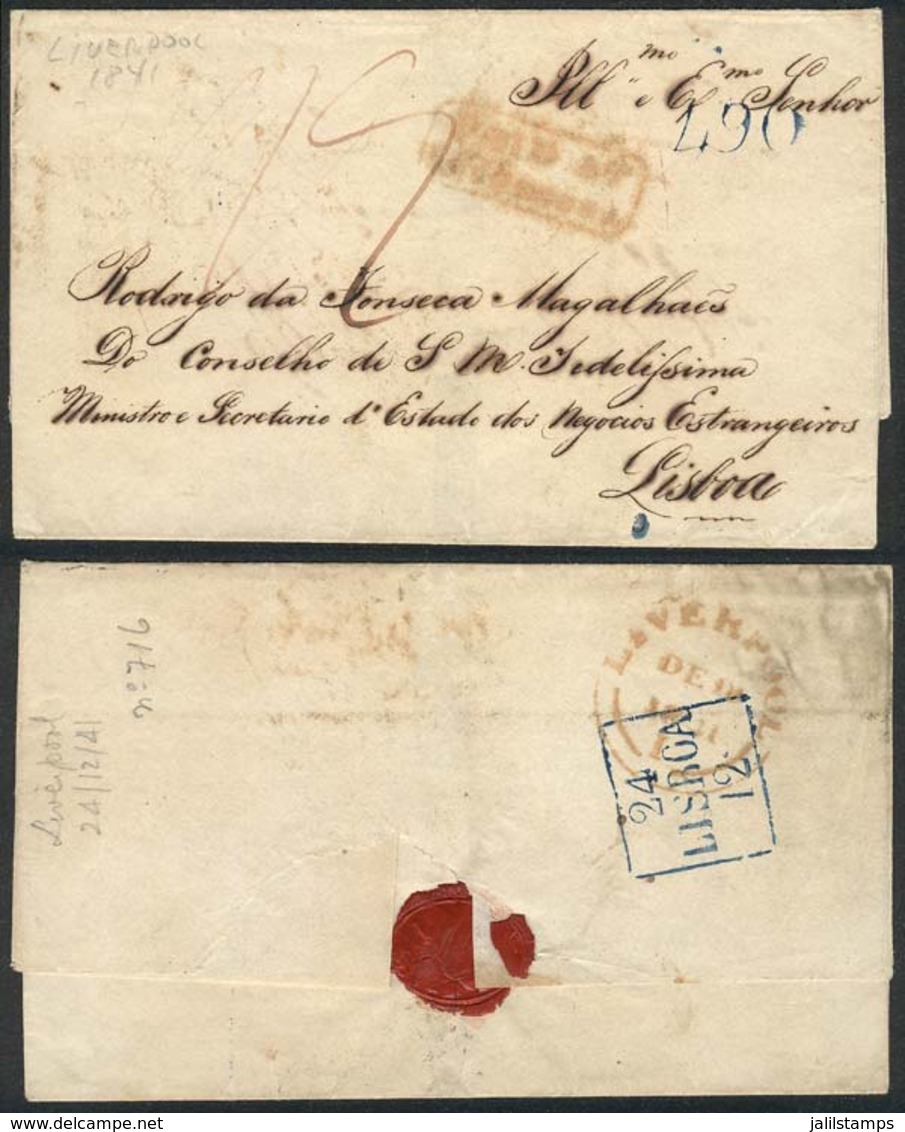 LIVERPOOL
1841
Illmo e Exmo Senhor
490
Rodrigo da Fonseca Magalhaẽs
Do Conselho de S M. Fedelissima
Ministro e Secretario d'Estado dos Negocios Estrangeiros
Lisboa
LIVERPOOL
DE
24
LISBOA
12
Liverpool
24/12/41
nº 716
jalilstamps